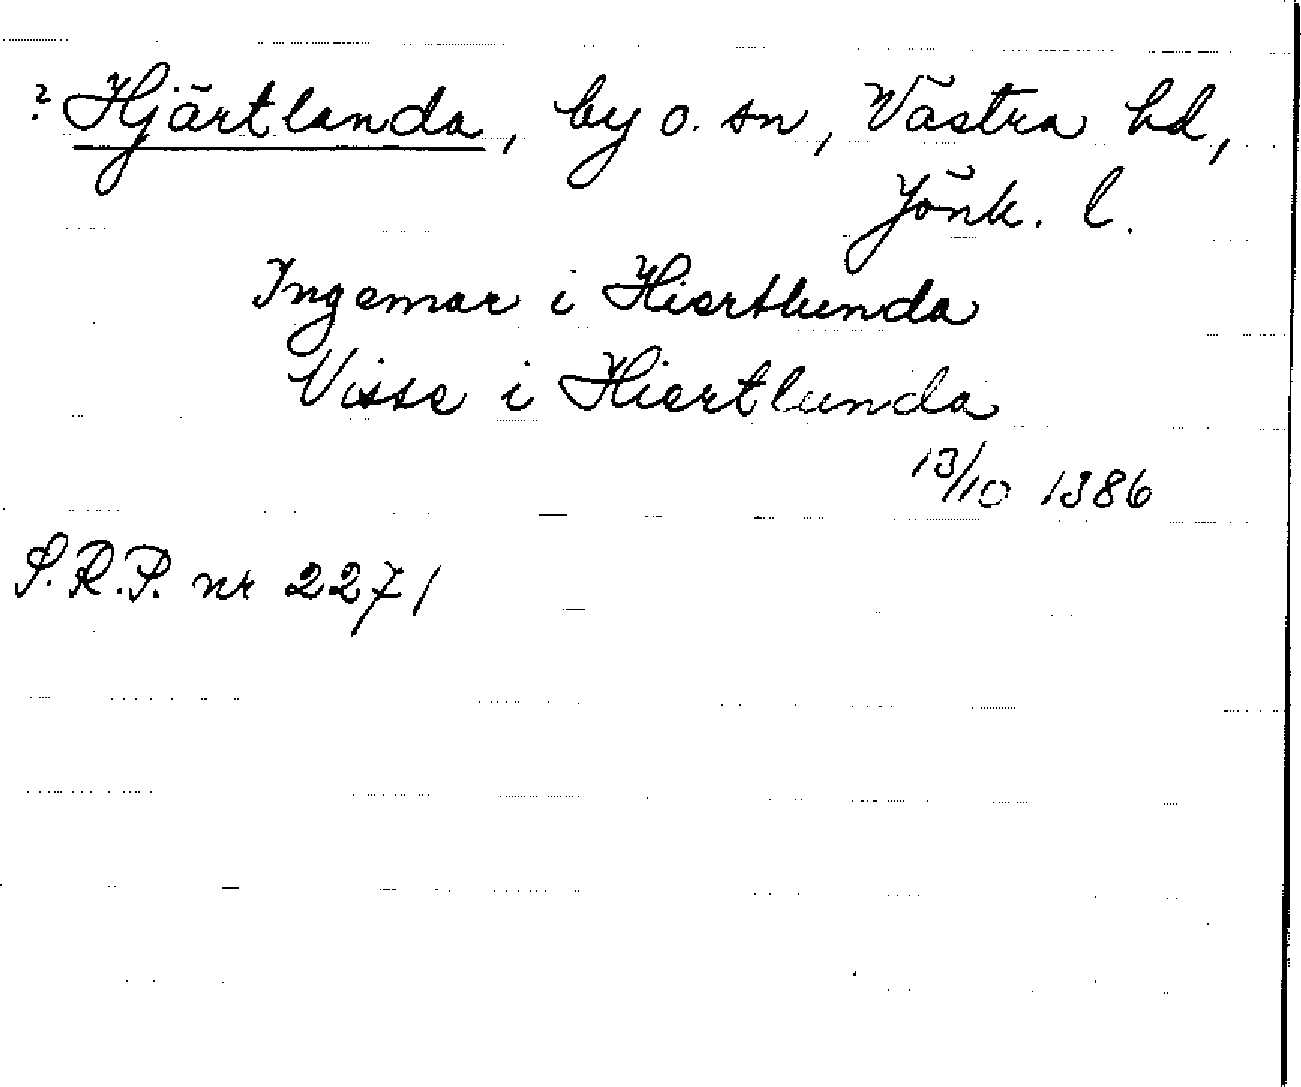 ? Hjärtlanda, by o. sn, Västra hd,
Jönk. l.
Ingemar i Hiertlunda
Visse i Hiertlunda
13/10 1386
S.R.P. nr 2271